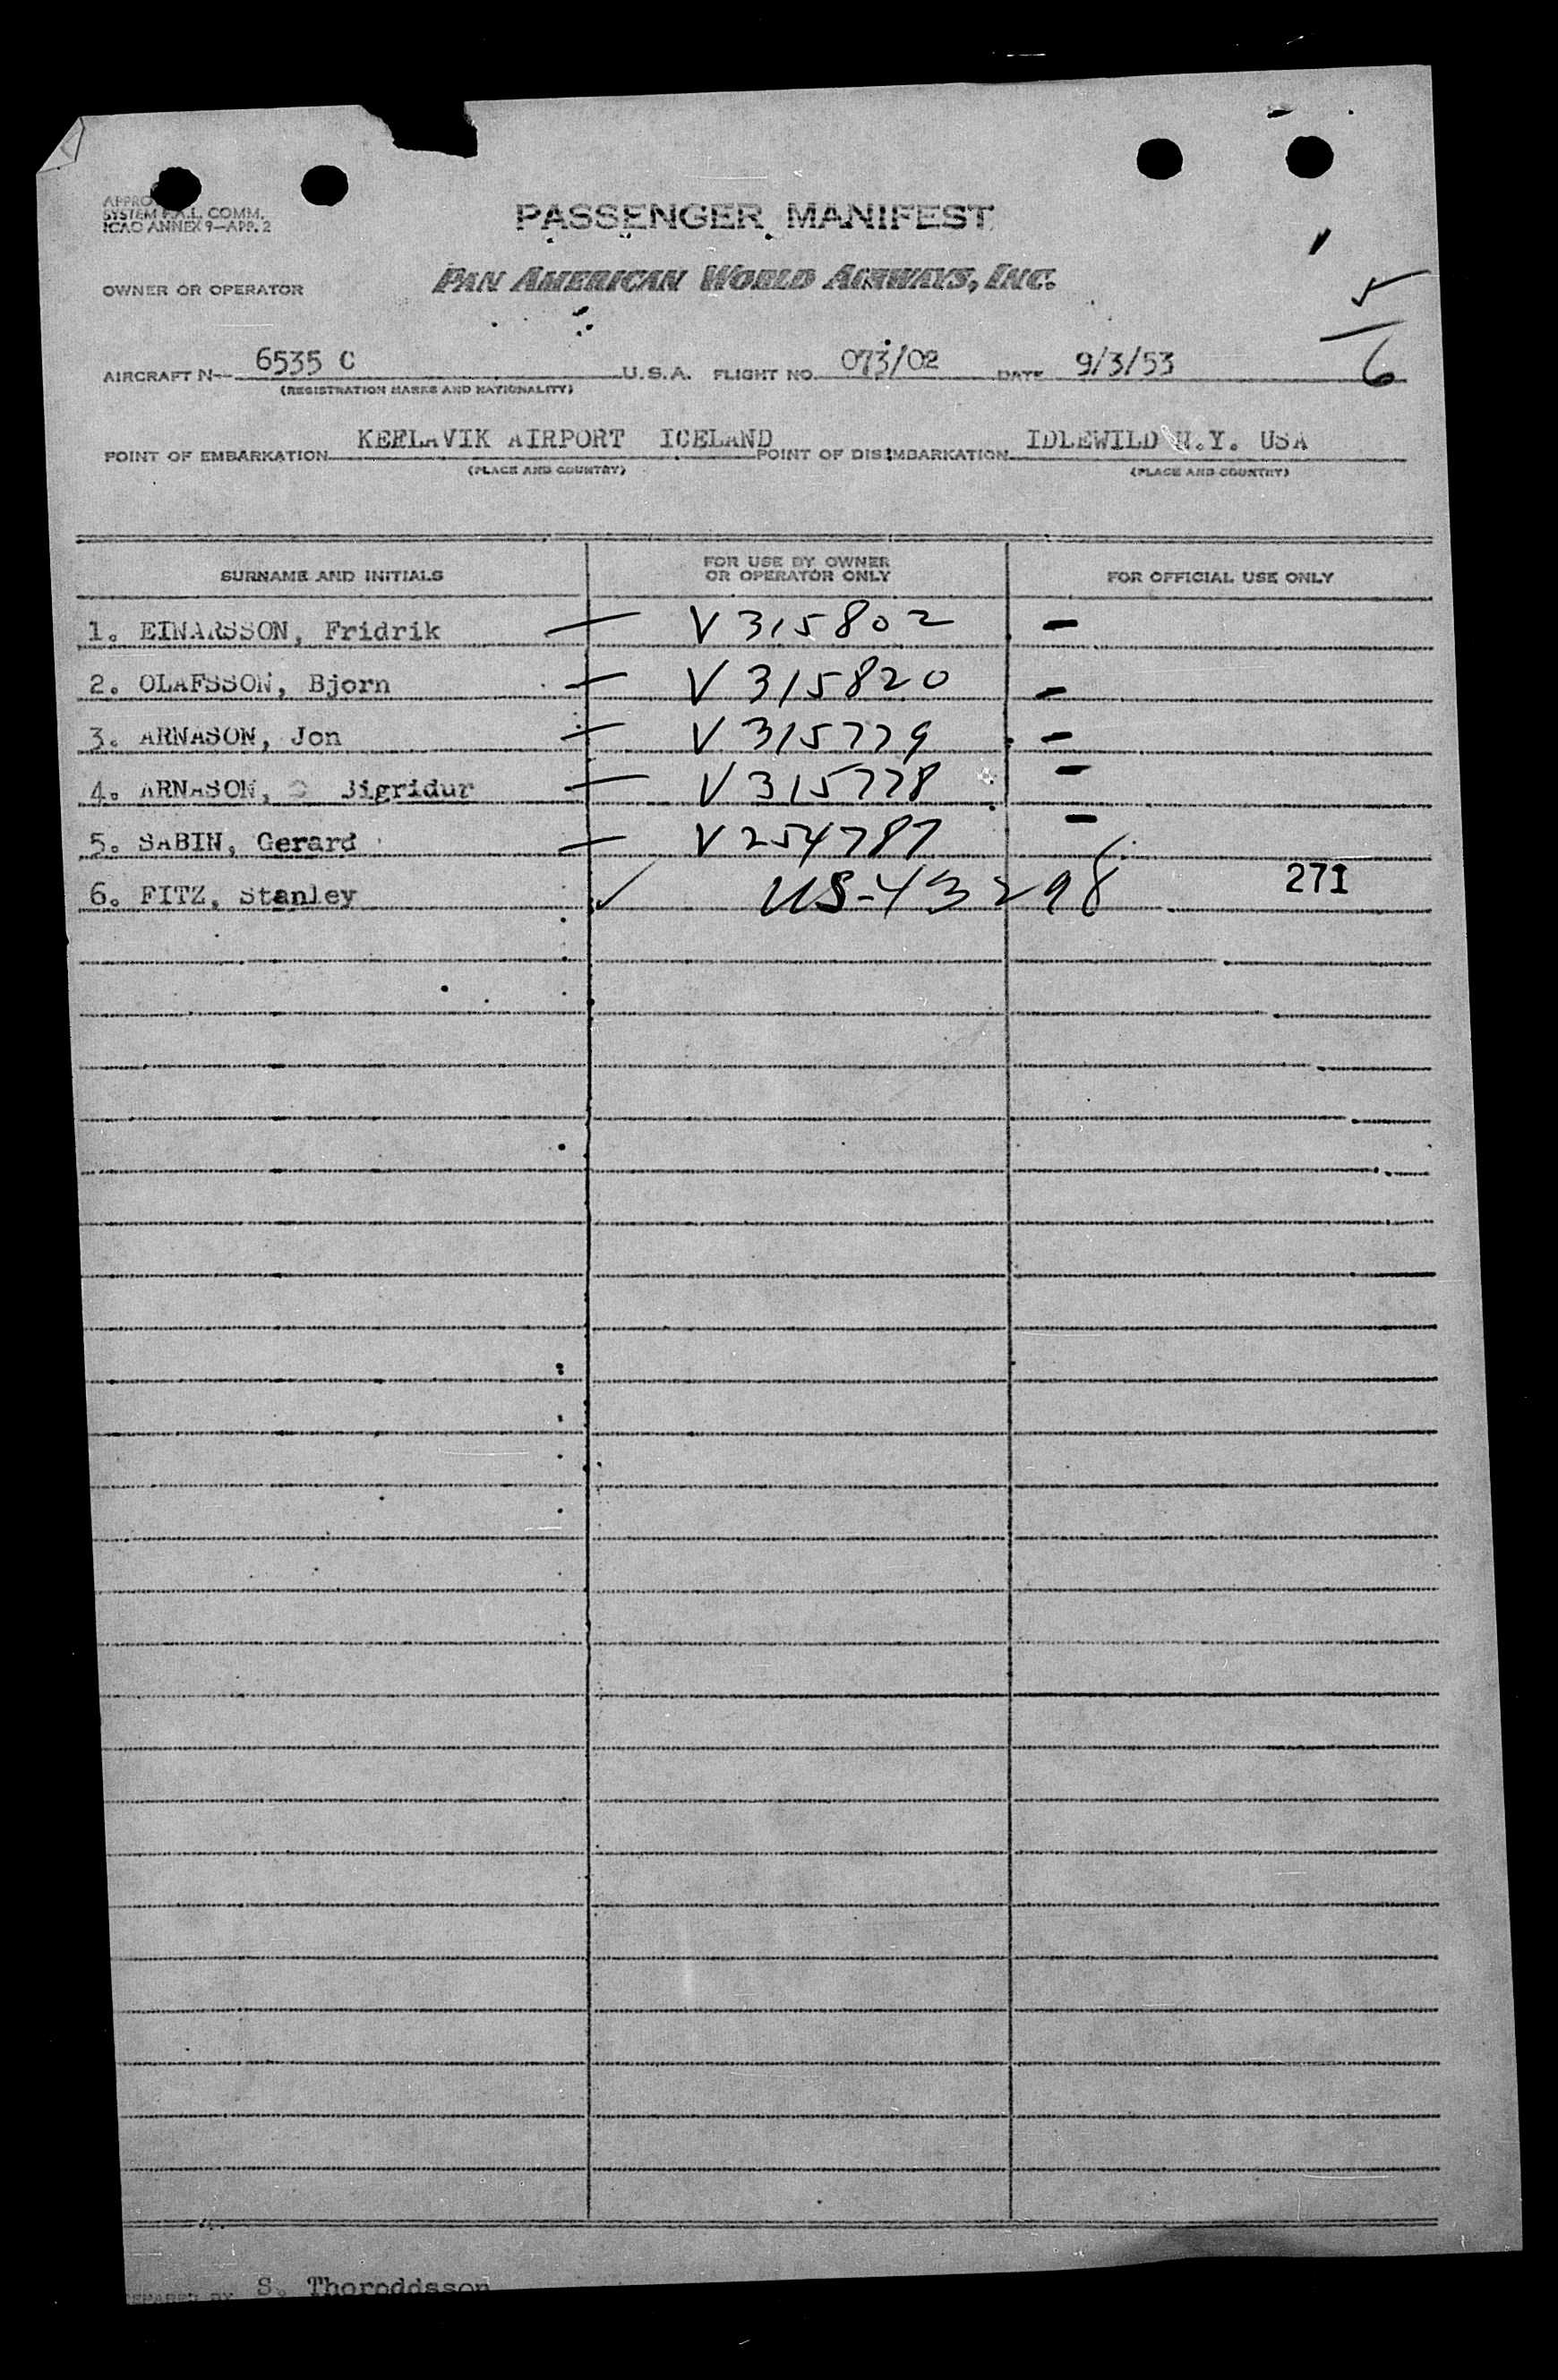 SYSTEM F.A.L. COMM.
ICAO ANNEX 9-APP. 2
PASSENGER MANIFEST
OWNER OR OPERATOR PAN AMERICAN WORLD AIRWAYS, INC.
5
6
AIRCRAFT N- 6535 C U.S.A. FLIGHT NO. 073/02 DATE 9/3/53
(REGISTRATION MARKS AND NATIONALITY)
POINT OF EMBARKATION KEFLAVIK AIRPORT ICELAND POINT OF DISEMBARKATION IDLEWILD N.Y. USA
(PLACE AND COUNTRY) (PLACE AND COUNTRY)
SURNAME AND INITIALS FOR USE BY OWNER OR OPERATOR ONLY FOR OFFICIAL USE ONLY
1. EINARSSON, Fridrik — V 315802 -
2. OLAFSSON, Bjorn — V 315820 -
3. ARNASON, Jon — V 315779 -
4. ARNASON, Sigridur — V 315778 -
5. SABIN, Gerard — V 254787 -
6. FITZ, Stanley ✓ US-43298 271
PREPARED BY S. Thoroddsson